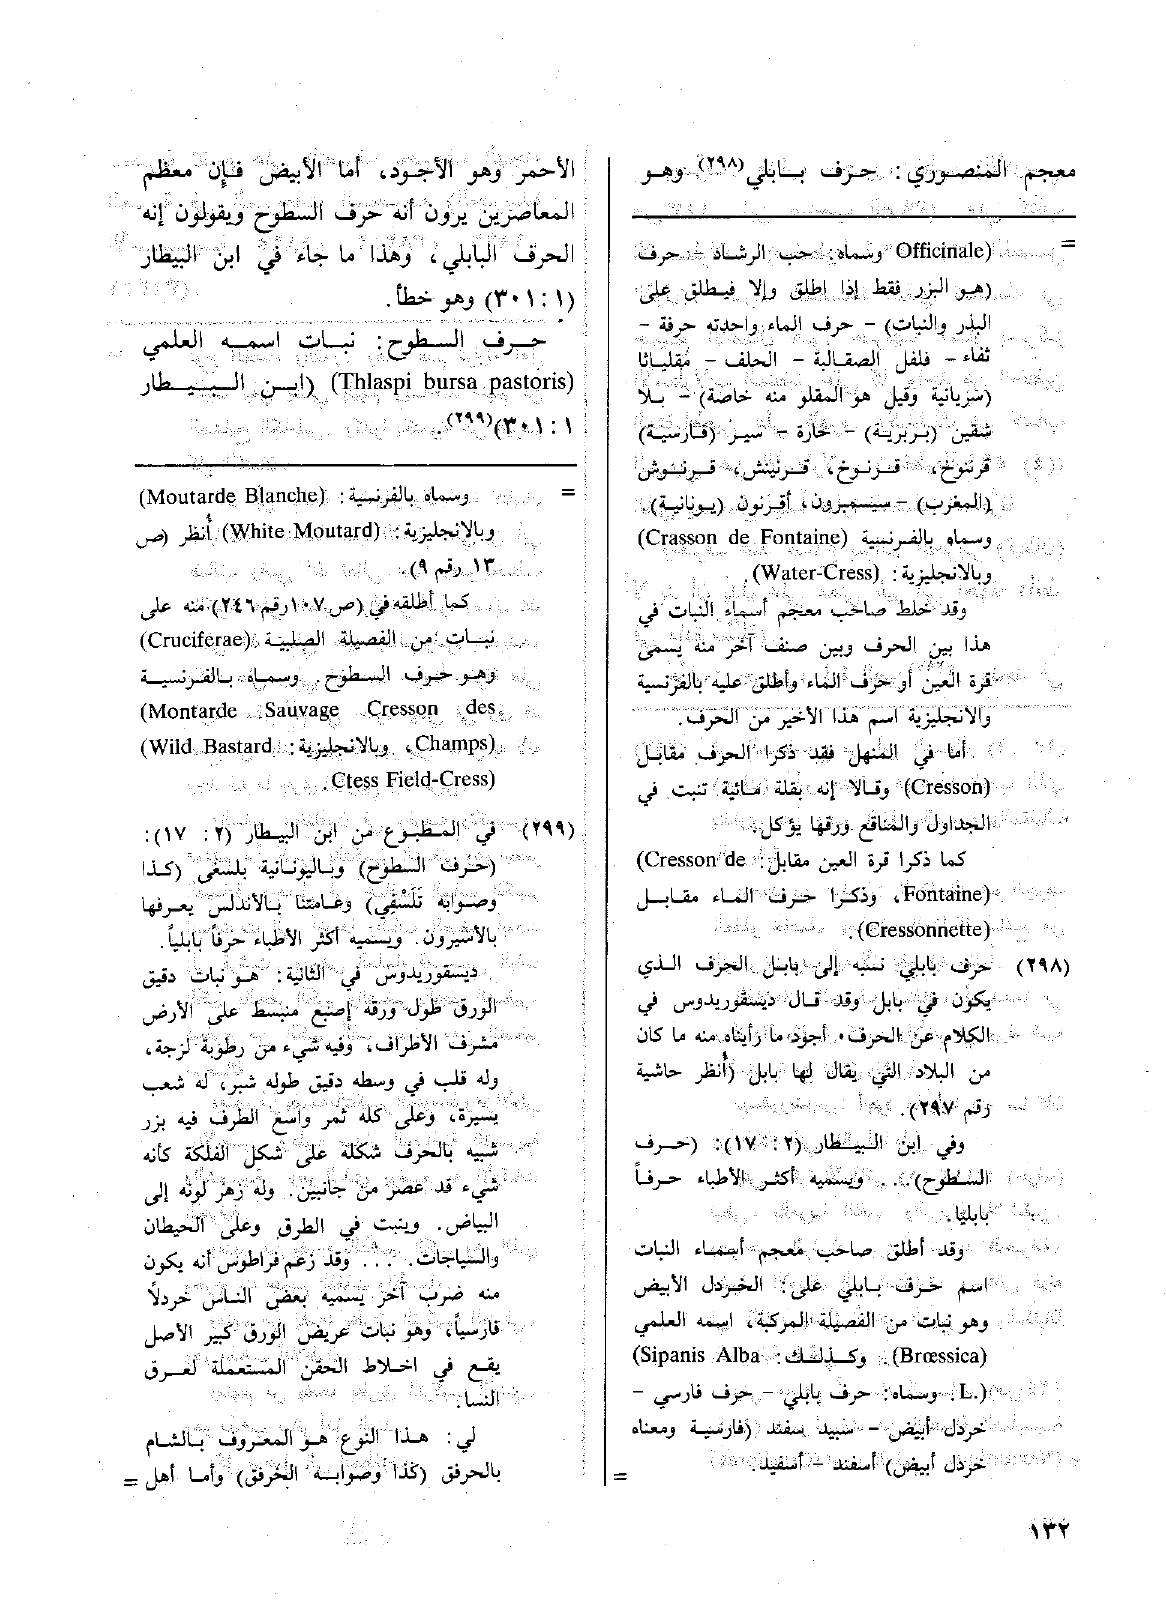 معجم المنصوري: حرف بابلي(٢٩٨) وهو
=
Officinale) وسماه: حب الرشاد - حرف
(هو البزر فقط إذا اطلق وإلا فيطلق على
البذر والنبات) - حرف الماء واحدته حرفة -
ثفاء - فلفل الصقالبة - الحلف - مقلياثا
(سريانية وقيل هو المقلو منه خاصة) - بلا
شقين (بربرية) - حارة - سير (فارسية)
قرنوخ، قرنوخ، قرنينش، قرنوش
(المغرب) - سيسمبرون، أقرنون (يونانية).
وسماه بالفرنسية (Crasson de Fontaine)
وبالانجليزية: (Water-Cress).
وقد خلط صاحب معجم أسماء النبات في
هذا بين الحرف وبين صنف آخر منه يسمى
قرة العين أو حرف الماء وأطلق عليه بالفرنسية
والانجليزية اسم هذا الأخير من الحرف.
أما في المنهل فقد ذكرا الحرف مقابل
(Cresson) وقالا إنه بقلة مائية تنبت في
الجداول والمناقع ورقها يؤكل.
كما ذكرا قرة العين مقابل: (Cresson de
Fontaine)، وذكرا حرف الماء مقابل
(Cressonnette).
(٢٩٨) حرف بابلي نسبه إلى بابل الحرف الذي
يكون في بابل وقد قال ديسقوريدوس في
الكلام عن الحرف. أجود ما رأيناه منه ما كان
من البلاد التي يقال لها بابل (أنظر حاشية
رقم ٢٩٧).
وفي ابن البيطار (٢: ١٧): (حرف
السطوح)... ويسميه أكثر الأطباء حرفاً
بابليا.
وقد أطلق صاحب معجم أسماء النبات
اسم حرف بابلي على: الخردل الأبيض
وهو نبات من الفصيلة المركبة، اسمه العلمي
(Brœssica). وكذلك: (Sipanis Alba
L.). وسماه: حرف بابلي - حرف فارسي -
خردل أبيض - سبيد سفند (فارسية ومعناه
خردل أبيض) أسفند - أسفيد.
=
الأحمر وهو الأجود، أما الأبيض فإن معظم
المعاصرين يرون أنه حرف السطوح ويقولون إنه
الحرف البابلي، وهذا ما جاء في ابن البيطار
(١: ٣٠١) وهو خطأ.
حرف السطوح: نبات اسمه العلمي
(Thlaspi bursa pastoris) (ابن البيطار
١: ٣٠١)(٢٩٩).
=
وسماه بالفرنسية: (Moutarde Blanche)
وبالانجليزية: (White Moutard) أنظر (ص
١٣ رقم ٩).
كما أطلقه في (ص ١٠٧ رقم ٢٤٦) منه على
نبات من الفصيلة الصليبة (Cruciferae)
وهو حرف السطوح. وسماه بالفرنسية
(Montarde Sauvage Cresson des
Champs)، وبالانجليزية: (Wild Bastard
Ctess Field-Cress).
(٢٩٩) في المطبوع من ابن البيطار (٢: ١٧):
(حرف السطوح) وباليونانية بلسفى (كذا
وصوابه تلسفي) وعامتنا بالأندلس يعرفها
بالأشيرون. ويسميه أكثر الأطباء حرفاً بابلياً.
ديسقوريدوس في الثانية: هو نبات دقيق
الورق طول ورقه إصبع منبسط على الأرض
مشرف الأطراف، وفيه شيء من رطوبة لزجة،
وله قلب في وسطه دقيق طوله شبر، له شعب
يسيرة، وعلى كله ثمر واسع الطرف فيه بزر
شبيه بالحرف شكله على شكل الفلكة كأنه
شيء قد عصر من جانبين. وله زهر لونه إلى
البياض. وينبت في الطرق وعلى الحيطان
والسياجات. ... وقد زعم قراطوس أنه يكون
منه ضرب آخر يسميه بعض الناس خردلاً
فارسياً، وهو نبات عريض الورق كبير الأصل
يقع في اخلاط الحقن المستعملة لعرق
النسا.
لي: هذا النوع هو المعروف بالشام
بالحرفق (كذا وصوابه الحُرفق) وأما أهل
=
١٣٢